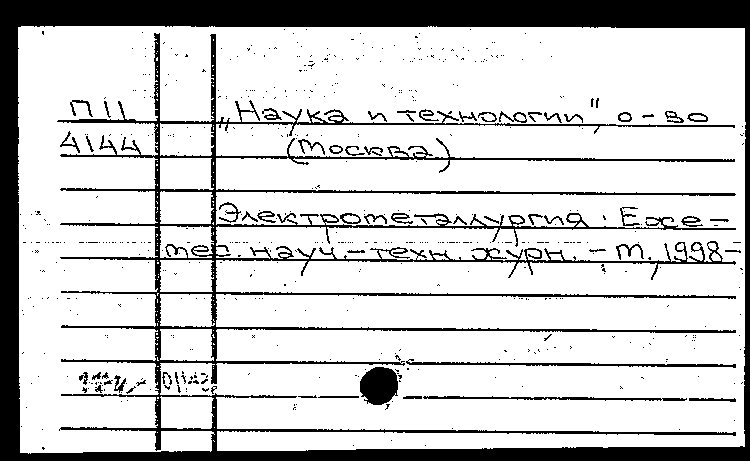 П11 „Наука и технологии", о-во
4144 (Москва)
Электрометаллургия. Еже-
мес. науч.-техн. журн. - М., 1998-